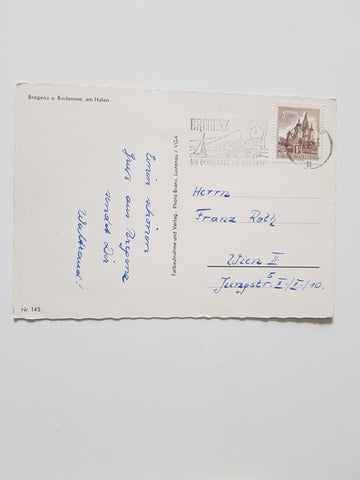 Bregenz a. Bodensee, am Hafen
BREGENZ
DIE BERGSTADT AM BODENSEE
Einen schönen
Gruß aus Bregenz
sendet Dir
Waltraud!
Farbaufnahme und Verlag: Photo Branz, Lustenau / VGA
Herrn
Franz Roth
Wien II.
Jungstr. 5 I./II./10.
Nr. 145